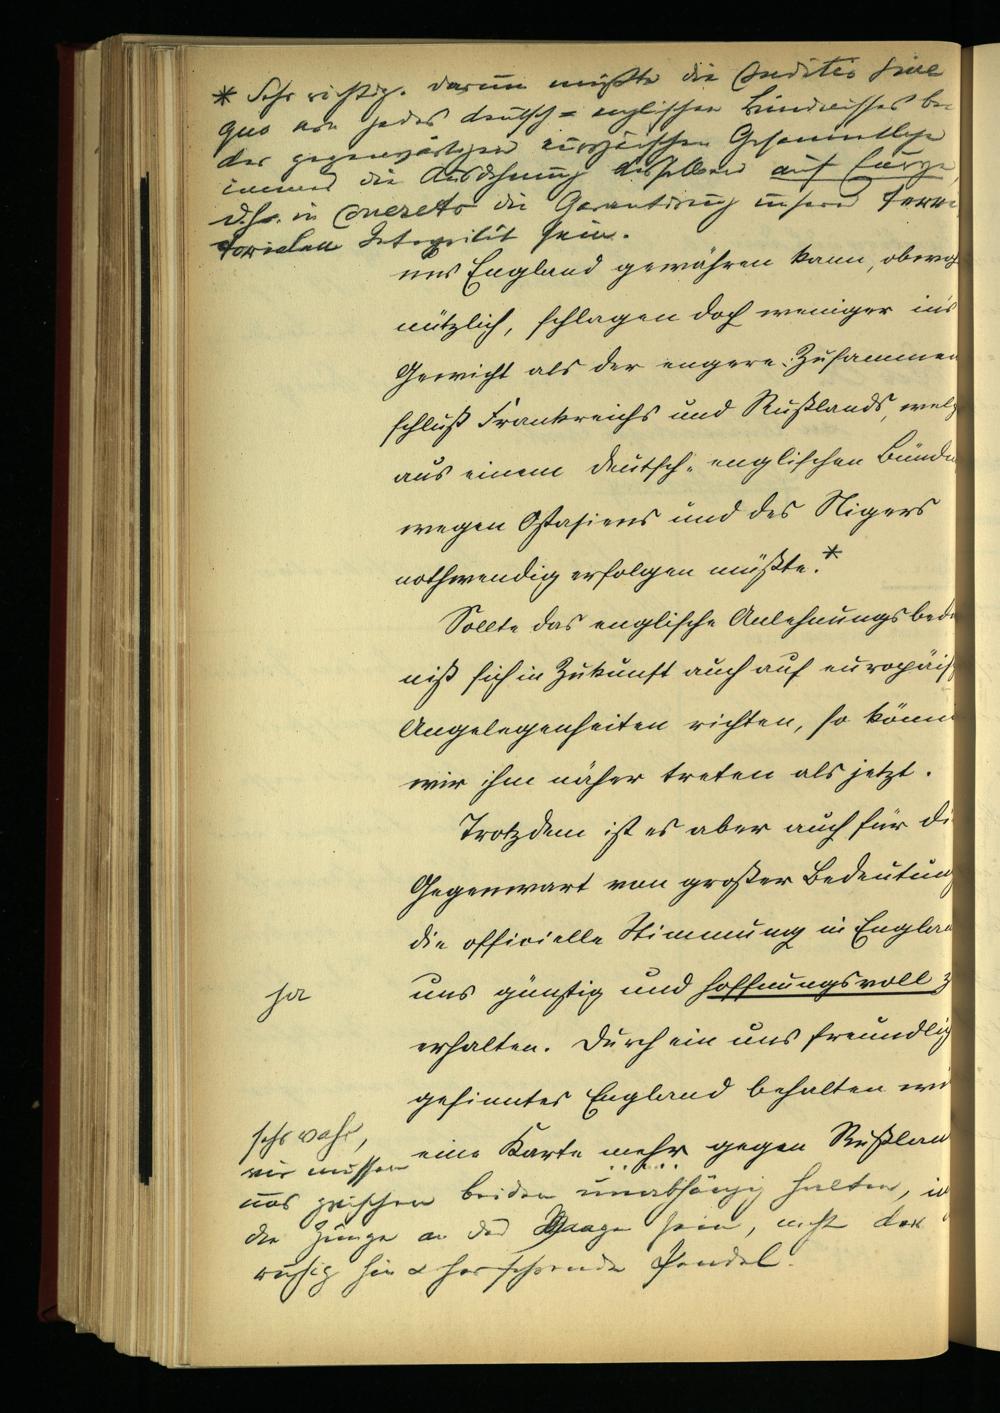 * Sehr richtig. Darum müßte die Conditio sine
quo non jedes deutsch-englischen Bündnisses bei
der gegenwärtigen europäischen Gesammtlage
immer die Ausdehnung desselben auf Europa,
d.h. in Concreto die Garantirung unserer terri-
torialen Integrität sein.
uns England gewähren kann, obwoh
nützlich, schlagen doch weniger in's
Gewicht als der engere Zusammen
schluß Frankreichs und Rußlands, welch
aus einem deutsch-englischen Bündn
wegen Ostasiens und des Nigers
nothwendig erfolgen müßte.*
Sollte das englische Anlehnungsbedü
niß sich in Zukunft auch auf europäisch
Angelegenheiten richten, so könn
wir ihm näher treten als jetzt.
Trotzdem ist es aber auch für di
Gegenwart von großer Bedeutung
die officielle Stimmung in Englan
ja
uns günstig und hoffnungsvoll z
erhalten. Durch ein uns freundlich
gesinntes England behalten wi
eine Karte mehr gegen Rußlan
sehr wahr,
wir müssen
uns zwischen beiden unabhängig halten,
die Zunge an der Waage sein, nicht der
ruhig hin & her Pendel.